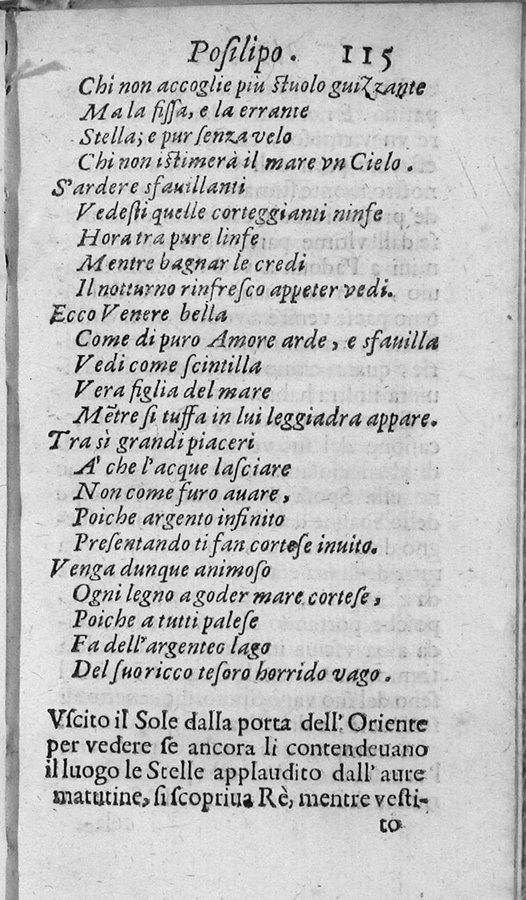 Poſilipo. 115
Chi non accoglie più ſtuolo guizzante
Ma la fiſſa, e la errante
Stella; e pur ſenza velo
Chi non iſtimerà il mare vn Cielo.
S'ardere sfauillanti
Vedeſti quelle corteggianti ninfe
Hora tra pure linfe
Mentre bagnar le credi
Il notturno rinfreſco appeter vedi.
Ecco Venere bella
Come di puro Amore arde, e sfauilla
Vedi come ſcintilla
Vera figlia del mare
Mẽtre ſi tuffa in lui leggiadra appare.
Tra sì grandi piaceri
A' che l'acque laſciare
Non come furo auare,
Poiche argento infinito
Preſentando ti fan corteſe inuito.
Venga dunque animoſo
Ogni legno a goder mare corteſe,
Poiche a tutti paleſe
Fa dell'argenteo lago
Del ſuo ricco teſoro horrido vago.
Vſcito il Sole dalla porta dell' Oriente
per vedere ſe ancora li contendeuano
il luogo le Stelle applaudito dall' aure
matutine, ſi scopriua Rè, mentre veſti-
to